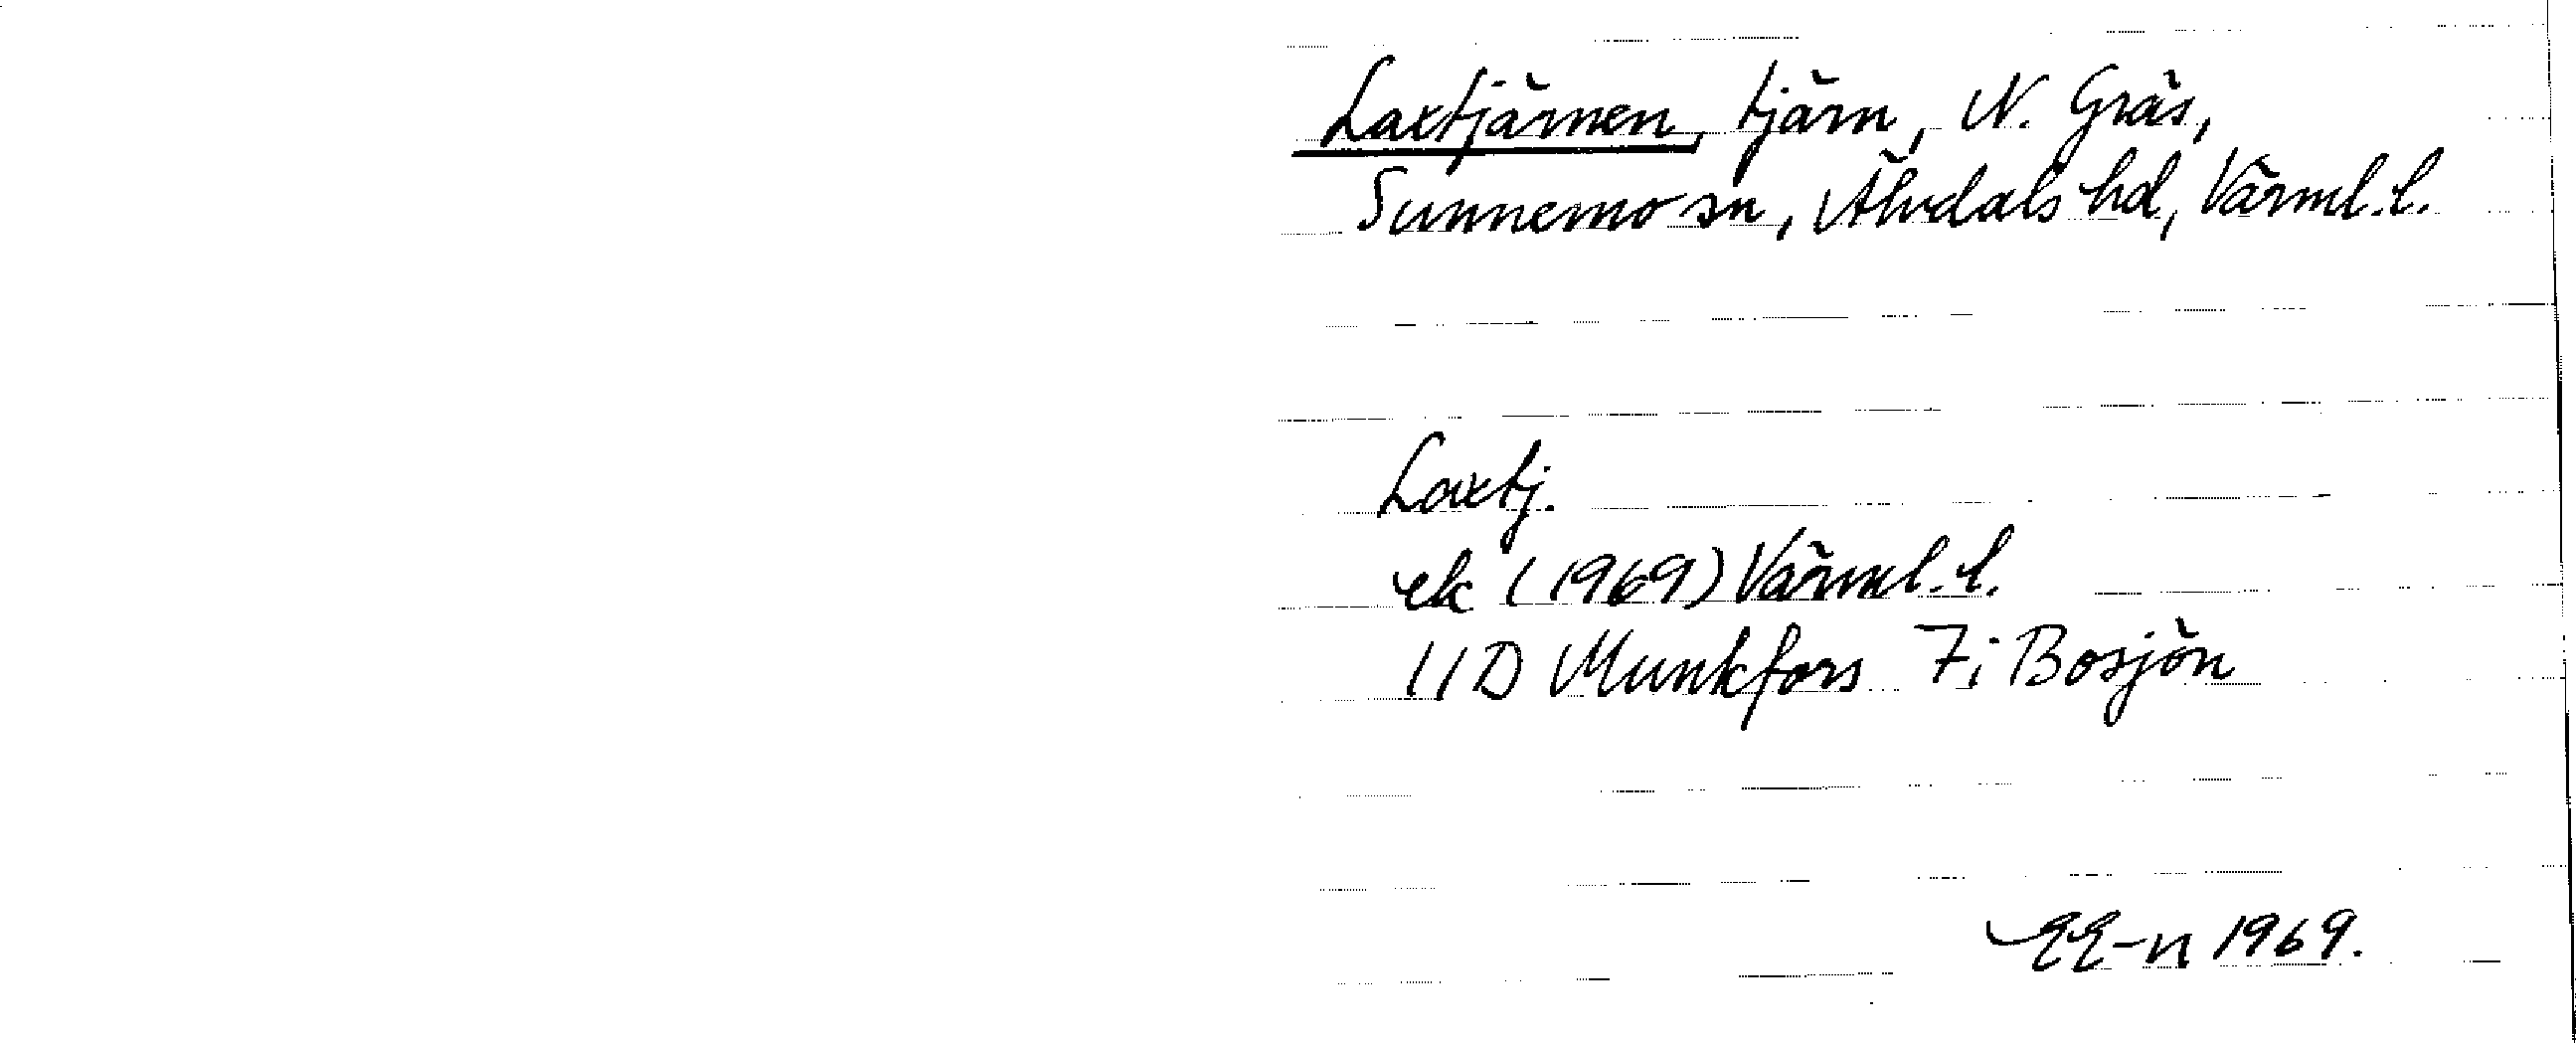 Laxtjärnen, tjärn, N. Gräs,
Sunnemo sn, Älvdals hd, Värml. l.
Laxtj.
ek (1969) Värml. l.
11D Munkfors 7i Bosjön
EE-n 1969.